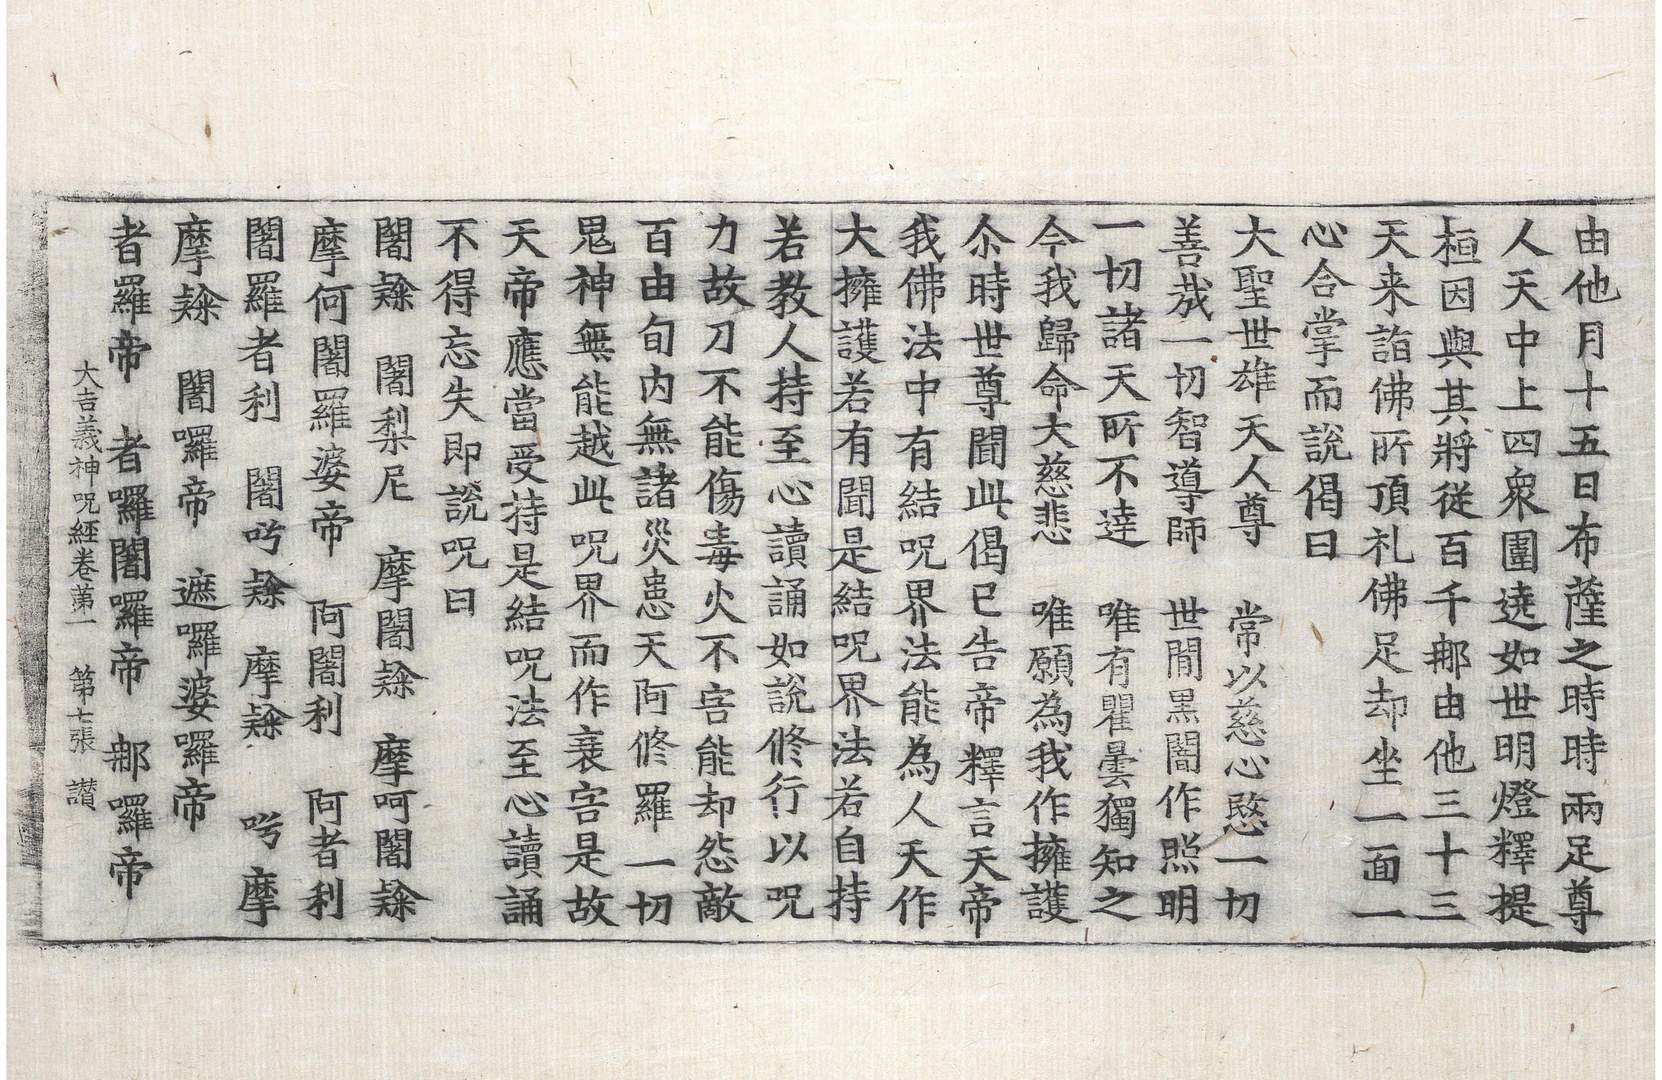 由他月十五日布薩之時時兩足尊
人天中上四衆圍遶如世明燈釋提
桓因與其將從百千𨚗由他三十三
天来詣佛所頂礼佛足却坐一面一
心合掌而說偈曰
大聖世雄天人尊　常以慈心愍一切
善哉一切智導師　世間黒闇作照明
一切諸天所不達　唯有瞿曇獨知之
今我歸命大慈悲　唯願為我作擁護
尒時世尊聞此偈已告帝釋言天帝
我佛法中有結呪界法能為人天作
大擁護若有聞是結呪界法若自持
若教人持至心讀誦如說修行以呪
力故刀不能傷毒火不害能却怨敵
百由旬内無諸災患天阿修羅一切
鬼神無能越此呪界而作衰害是故
天帝應當受持是結呪法至心讀誦
不得忘失即說呪曰
闍　闍梨尼　摩闍　摩呵闍
摩何闍羅婆帝　阿闍利　阿者利
闍羅者利　闍　摩　摩
摩　闍囉帝　遮囉婆囉帝
者羅帝　者囉闍囉帝　𨚗囉帝
大吉義神呪經卷苐一　第七張　讃